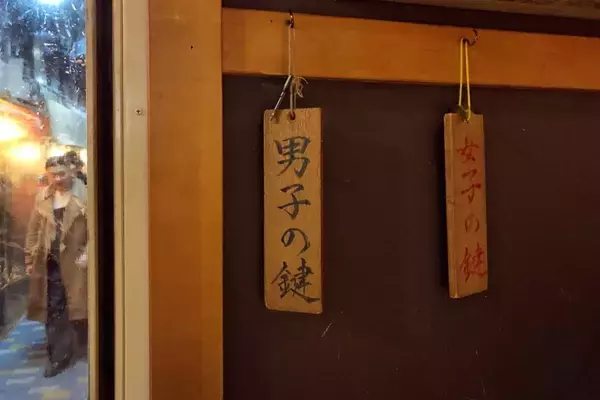 男子の鍵
女子の鍵